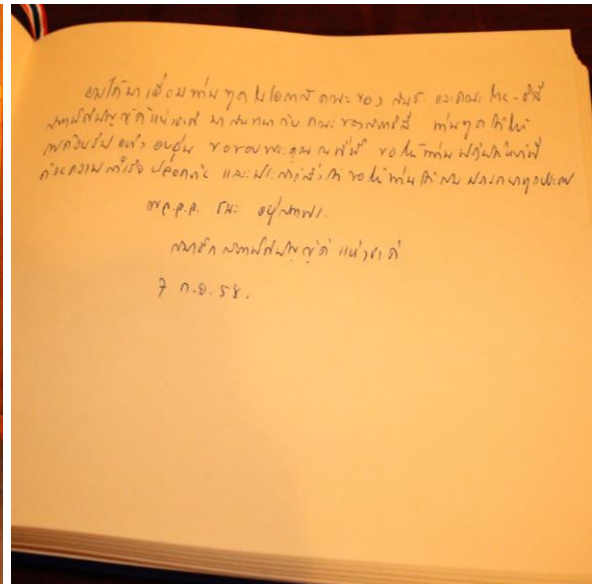 ผมได้มาเยี่ยมท่านทูตในโอกาสคณะของ สนช. และคณะ ไทย-ชิลี
สภานิติบัญญัติแห่งชาติ มาสนทนากับ คณะของสภาชิลี ท่านทูตได้ให้
การต้อนรับอย่างอบอุ่น ขอขอบพระคุณ ณ ที่นี้ ขอให้ท่าน
ด้วยความสำเร็จ ปลอดภัย และ ขอให้ท่านได้สมปรารถนาทุกประการ
พล.อ.อ. ชนะ อยู่สถาพร
สมาชิกสภานิติบัญญัติแห่งชาติ
7 ก.ย. 58.